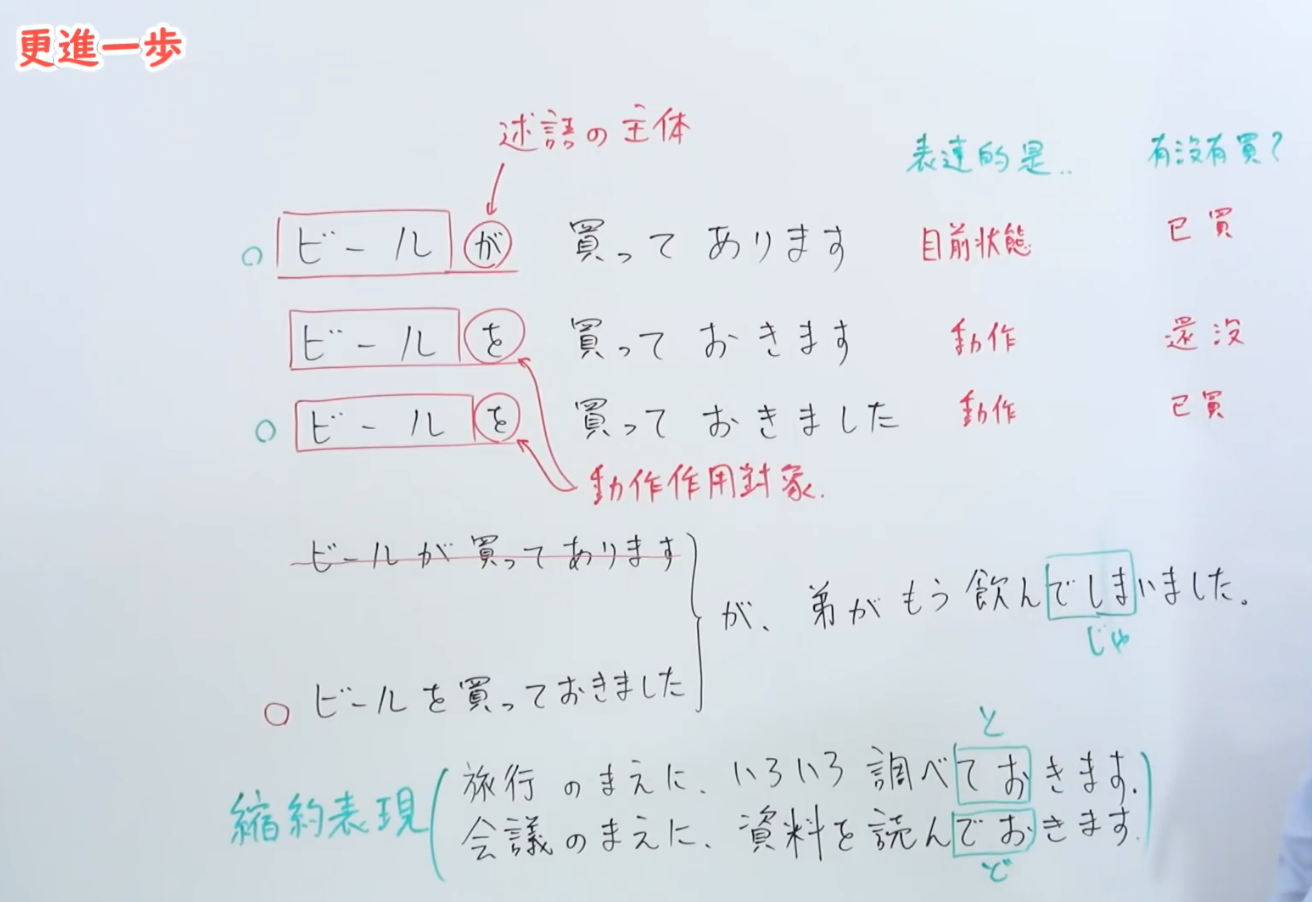 更進一步
述語の主体
表達的是.. 有沒有買?
○ ビールが 買ってあります 目前状態 已買
ビールを 買っておきます 動作 還沒
○ ビールを 買っておきました 動作 已買
動作作用對象.
ビールが買ってあります
が、弟がもう飲んでしまいました。
じゃ
○ ビールを買っておきました
と
縮約表現
旅行のまえに、いろいろ調べておきます.
会議のまえに、資料を読んでおきます.
ど